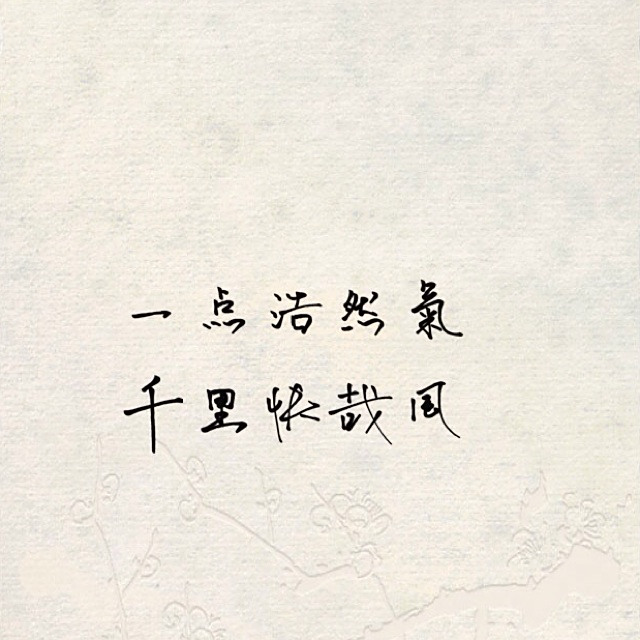 一点浩然氣
千里快哉风